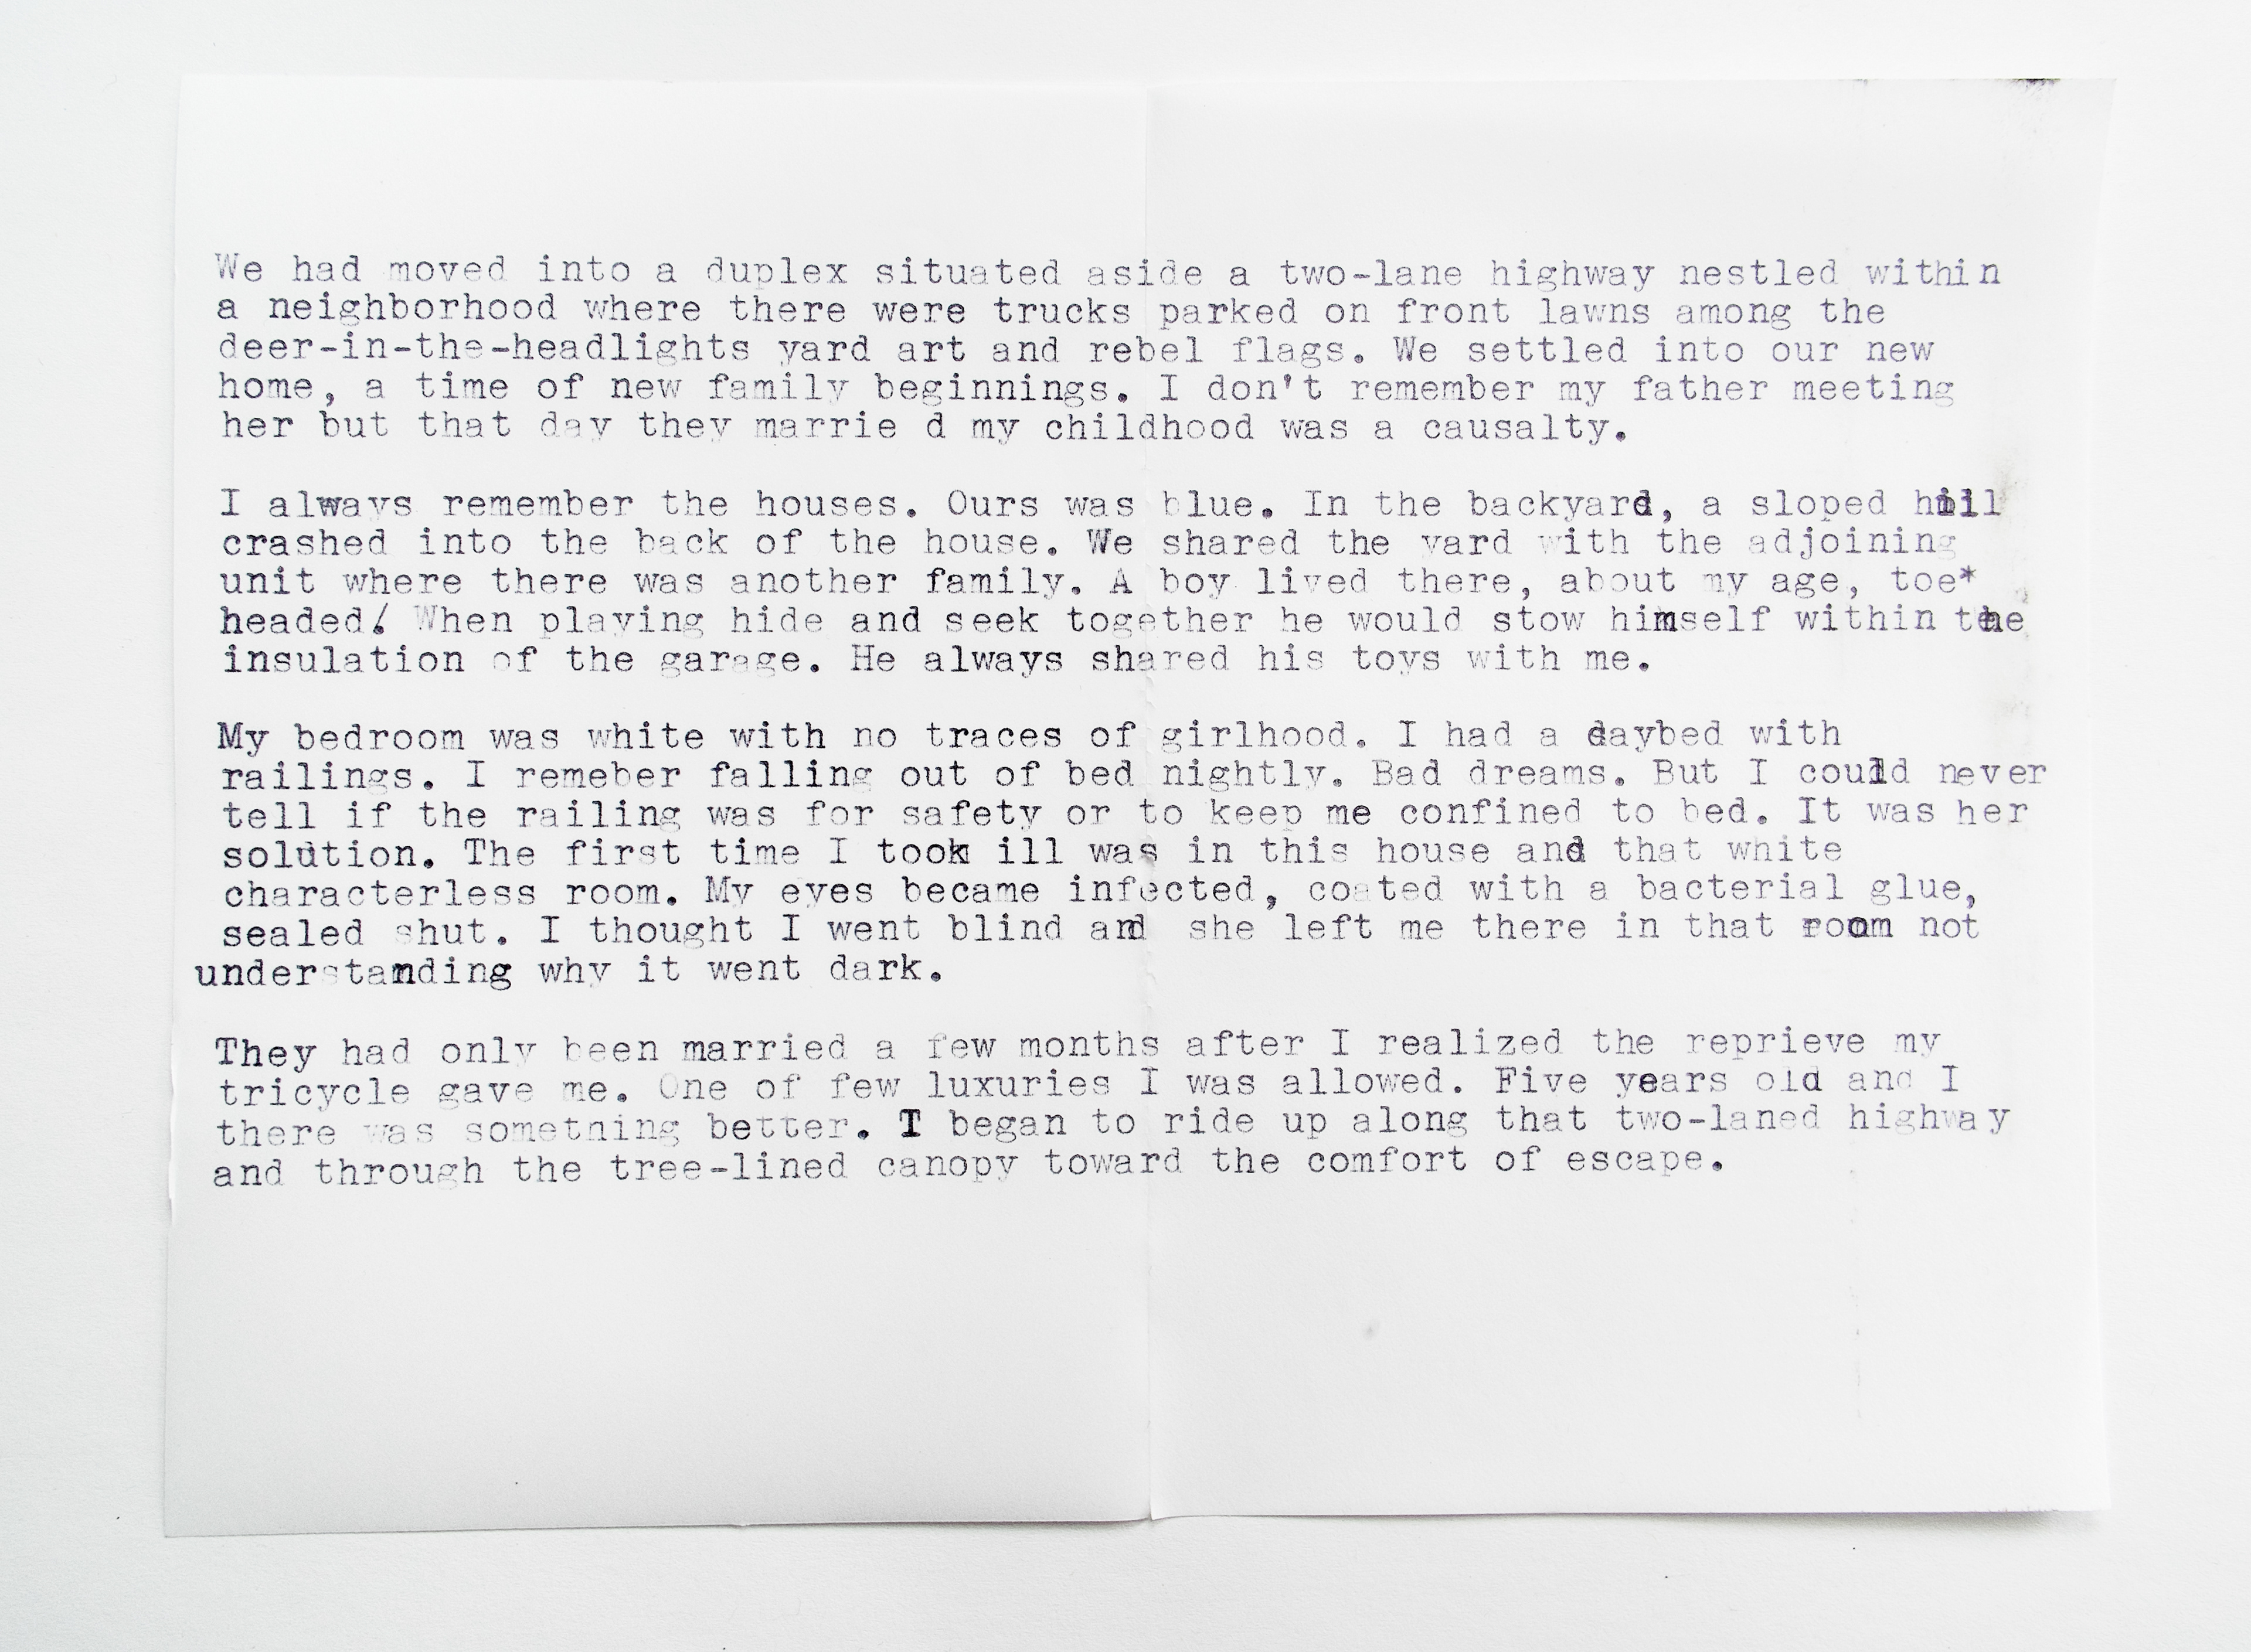 We had moved into a duplex situated aside a two-lane highway nestled within
a neighborhood where there were trucks parked on front lawns among the
deer-in-the-headlights yard art and rebel flags. We settled into our new
home, a time of new family beginnings. I don't remember my father meeting
her but that day they marrie d my childhood was a causalty.

I always remember the houses. Ours was blue. In the backyard, a sloped hill
crashed into the back of the house. We shared the yard with the adjoining
unit where there was another family. A boy lived there, about my age, toe*
headed. When playing hide and seek together he would stow himself within the
insulation of the garage. He always shared his toys with me.

My bedroom was white with no traces of girlhood. I had a daybed with
railings. I remeber falling out of bed nightly. Bad dreams. But I could never
tell if the railing was for safety or to keep me confined to bed. It was her
solution. The first time I took ill was in this house and that white
characterless room. My eyes became infected, coated with a bacterial glue,
sealed shut. I thought I went blind and she left me there in that room not
understanding why it went dark.

They had only been married a few months after I realized the reprieve my
tricycle gave me. One of few luxuries I was allowed. Five years old and I
there was something better. I began to ride up along that two-laned highway
and through the tree-lined canopy toward the comfort of escape.